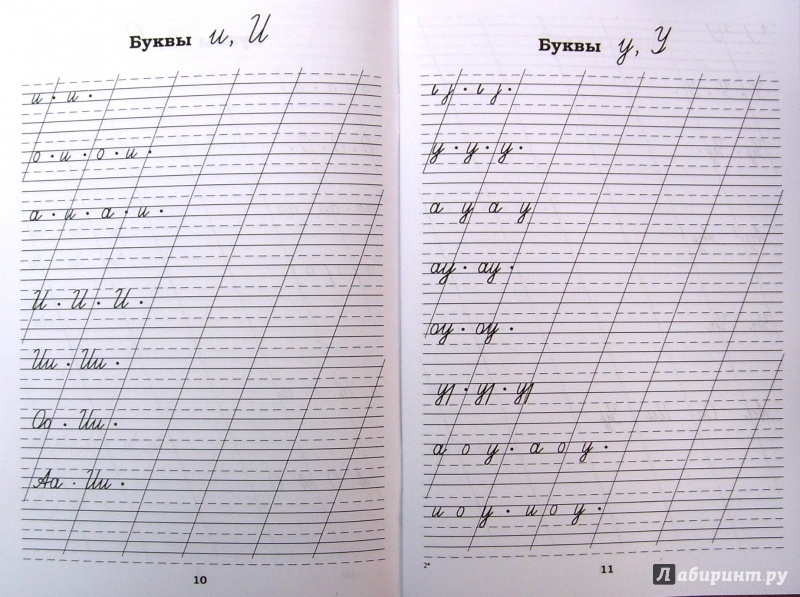 Буквы и, И
и · и ·
о · и · о · и ·
а · и · а · и ·
И · И · И ·
Ии · Ии ·
Оо · Ии ·
Аа · Ии ·
10
Буквы у, У
у · у · у ·
а у а у
ау · ау ·
оу · оу ·
а о у · а о у ·
и о у · и о у ·
2*
11
Лабиринт.ру